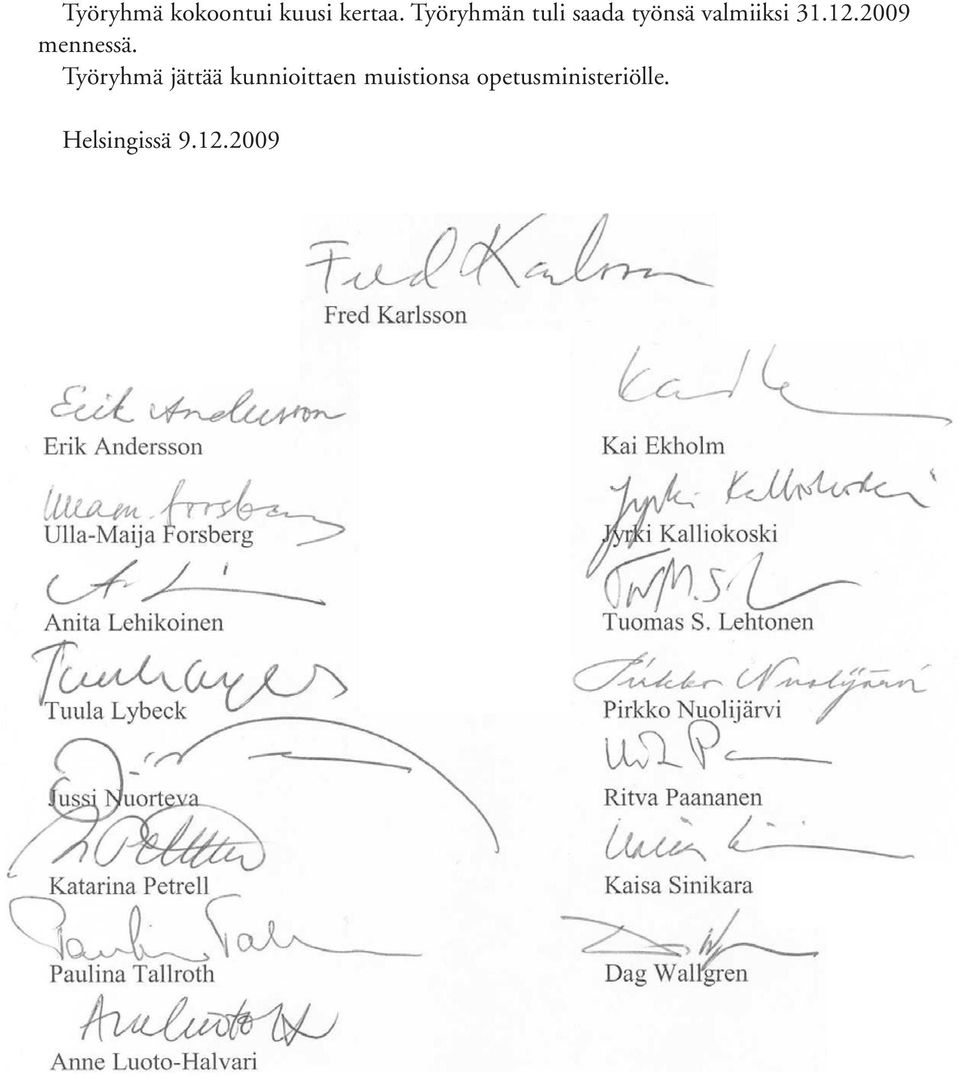 Työryhmä kokoontui kuusi kertaa. Työryhmän tuli saada työnsä valmiiksi 31.12.2009
mennessä.
Työryhmä jättää kunnioittaen muistionsa opetusministeriölle.
Helsingissä 9.12.2009
Fred Karlsson
Fred Karlsson
Erik Andersson
Erik Andersson
Kai Ekholm
Ulla-Maija Forsberg
Jyrki Kalliokoski
Jyrki Kalliokoski
Anita Lehikoinen
Tuomas S. Lehtonen
Tuula Lybeck
Pirkko Nuolijärvi
Pirkko Nuolijärvi
Jussi Nuorteva
Ritva Paananen
Katarina Petrell
Kaisa Sinikara
Paulina Tallroth
Dag Wallgren
Anne Luoto-Halvari